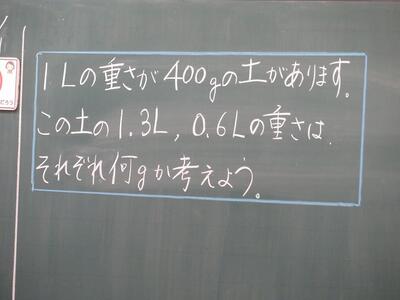 1Lの重さが400gの土があります。
この土の1.3L,0.6Lの重さは、
それぞれ何gか考えよう。